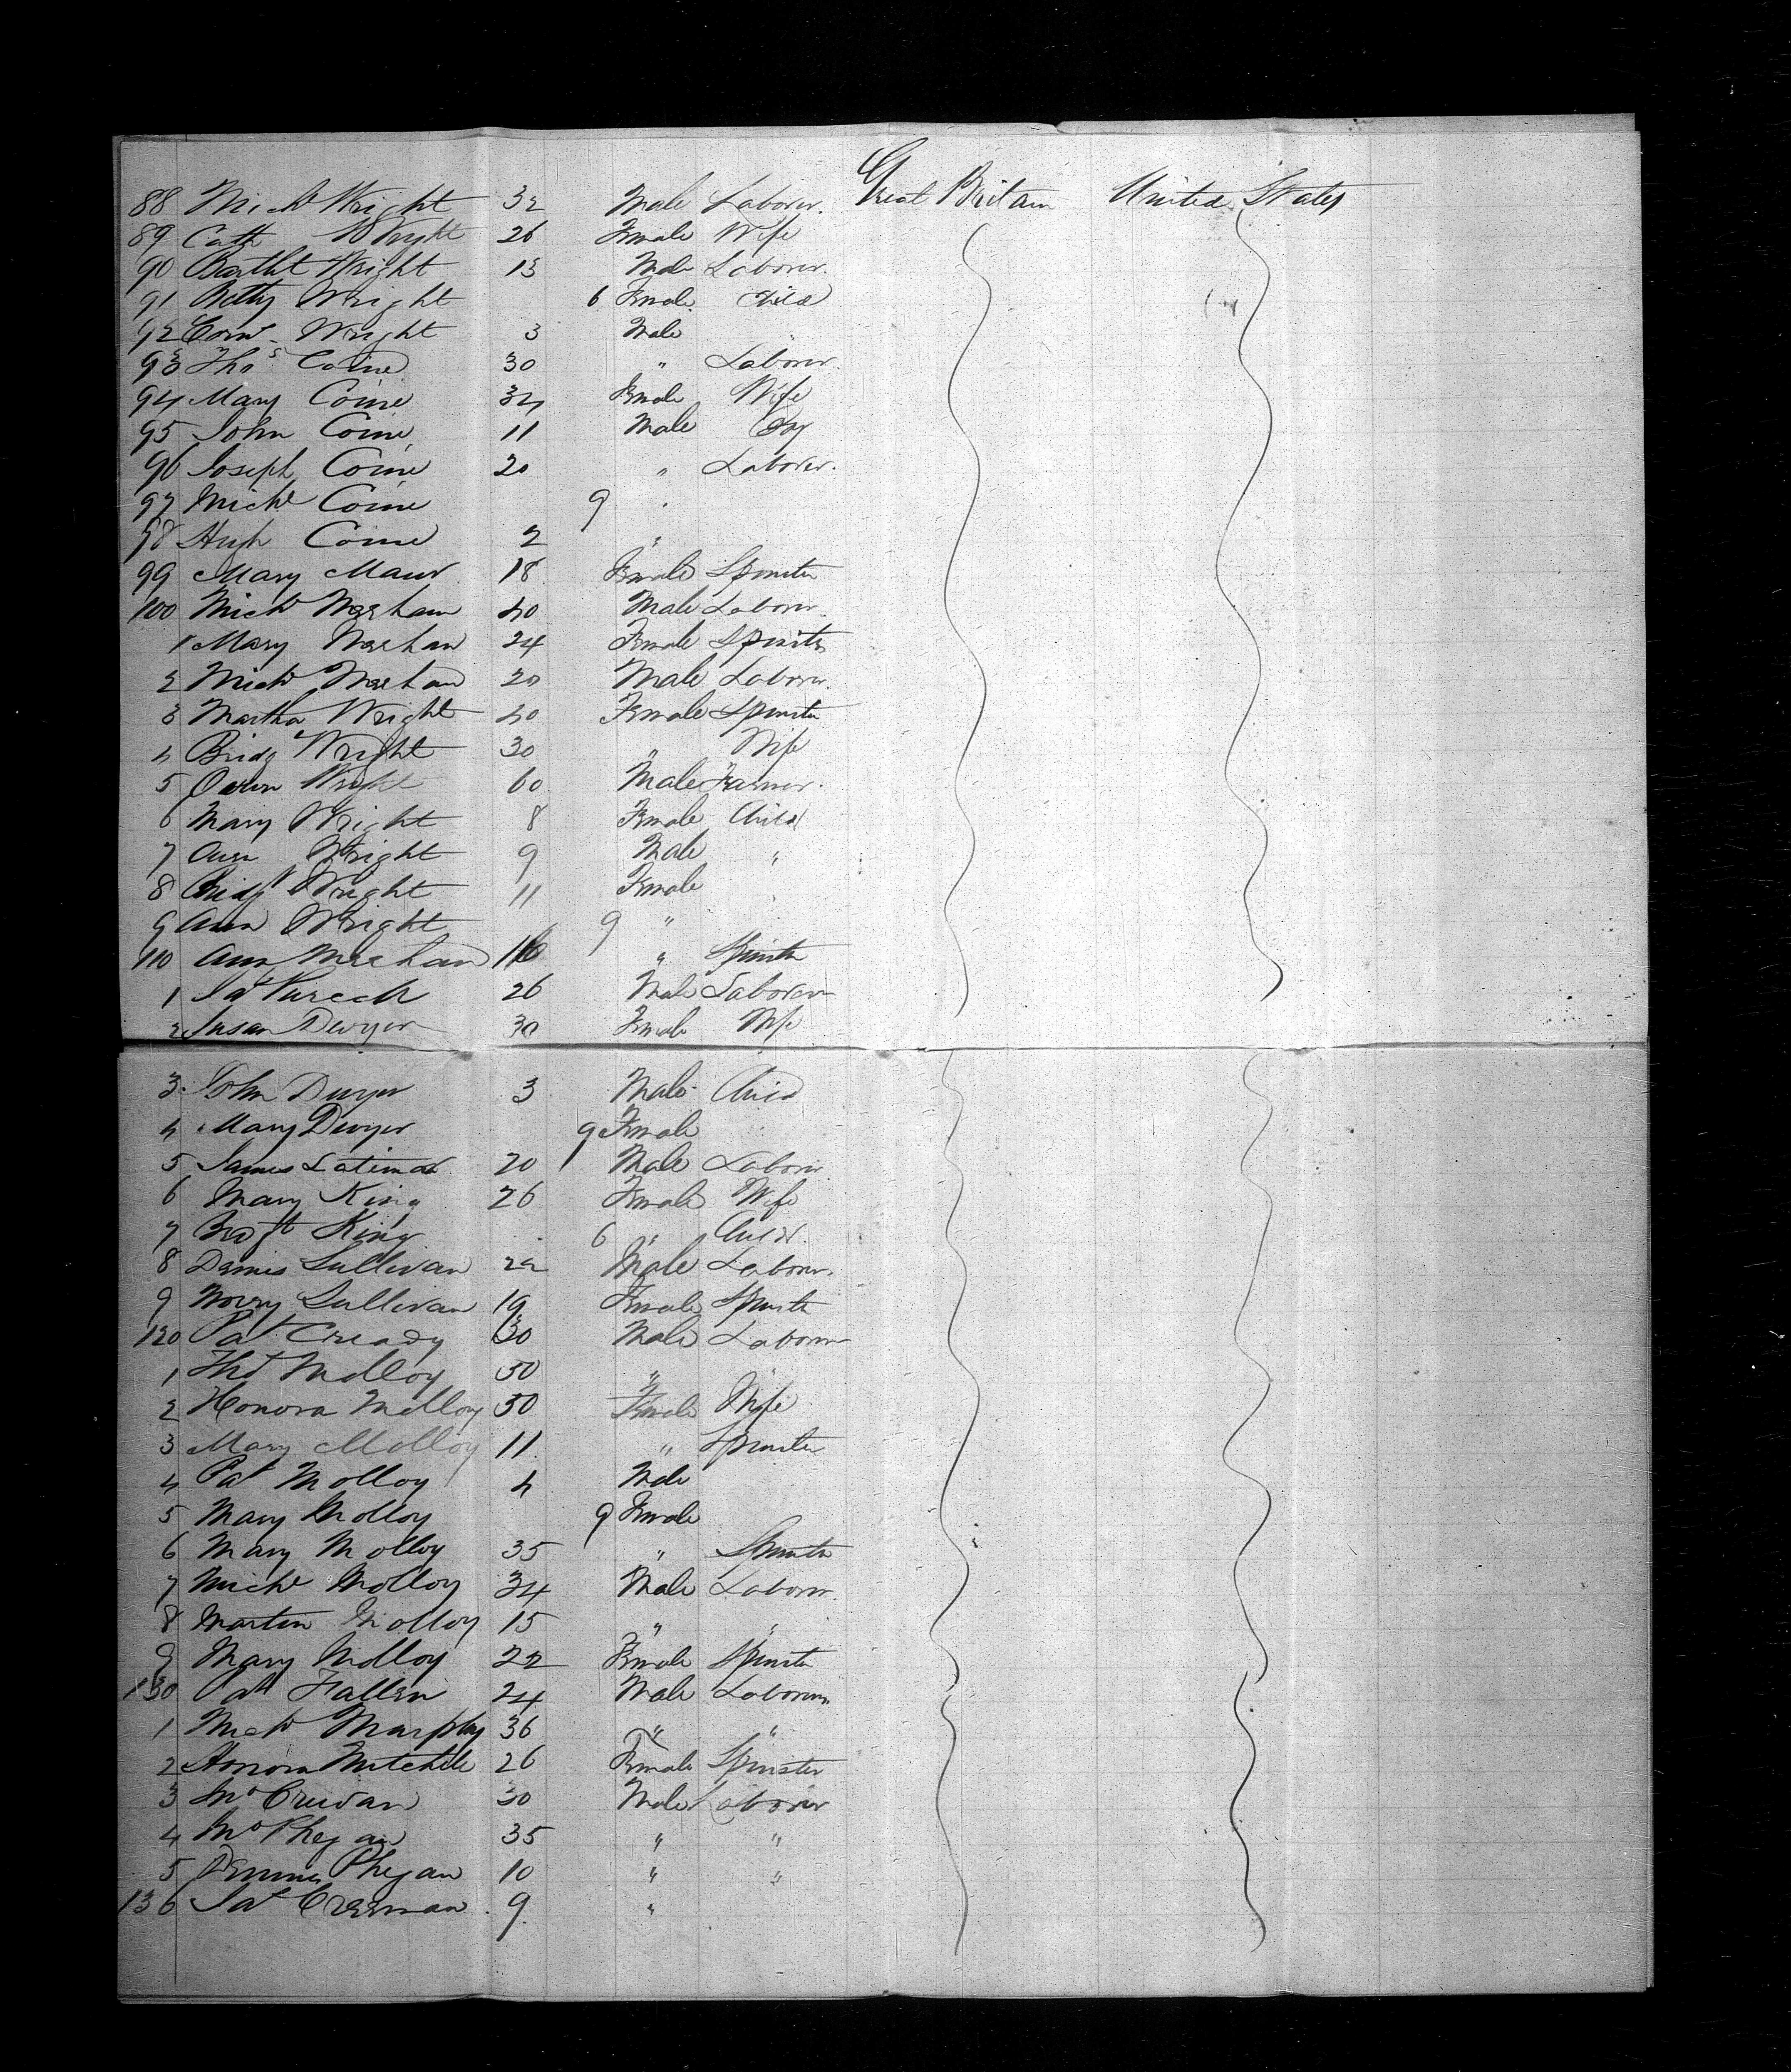 88 Mich Wright 32 Male Laborer. Great Britain United States
89 Cath Wright 26 Female Wife
90 Barthl Wright 13 Male Laborer.
91 Betty Wright 6 Female Child
92 Corn Wright 3 Male
93 Thos Coine 30 " Laborer.
94 Mary Coine 34 Female Wife
95 John Coine 11 Male Boy
96 Joseph Coine 20 " Laborer.
97 Michl Coine 9
98 Hugh Coine 2 "
99 Mary 18 Female Spinster
100 Mich Meehan 40 Male Laborer.
1 Mary Meehan 24 Female Spinster
2 Mich Meehan 20 Male Laborer.
3 Martha Wright 40 Female Spinster
4 Bridg Wright 30 " Wife
5 Owen Wright 60 Male Farmer.
6 Mary Wright 8 Female Child
7 Wright 9 Male "
8 Bridgt Wright 11 Female
9 Ann Wright 9 "
110 Ann Meehan 16 " Spinster
1 26 Male Laborer
2 Susan Dwyer 30 Female Wife
3 John Dwyer 3 Male Child
4 Mary Dwyer 9 Female
5 James Latimer 20 Male Laborer
6 Mary King 26 Female Wife
7 King 6 " Child.
8 Dennis Sullivan 22 Male Laborer.
9 Mary Sullivan 19 Female Spinster
120 Pat Cready 30 Male Laborer
1 Thos Molloy 50 "
2 Honora Molloy 50 Female Wife
3 Mary Molloy 11 " Spinster
4 Pat Molloy 4 Male
5 Mary Molloy 9 Female
6 Mary Molloy 35 " Spinster
7 Michl Molloy 34 Male Laborer.
8 Martin Molloy 15 " "
9 Mary Molloy 22 Female Spinster
130 Pat Fallen 24 Male Laborer
1 Mich Murphy 36 " "
2 Honora Mitchell 26 Female Spinster
3 30 Male Laborer
4 Phegan 35 " "
5 Phegan 10 " "
136 9 "